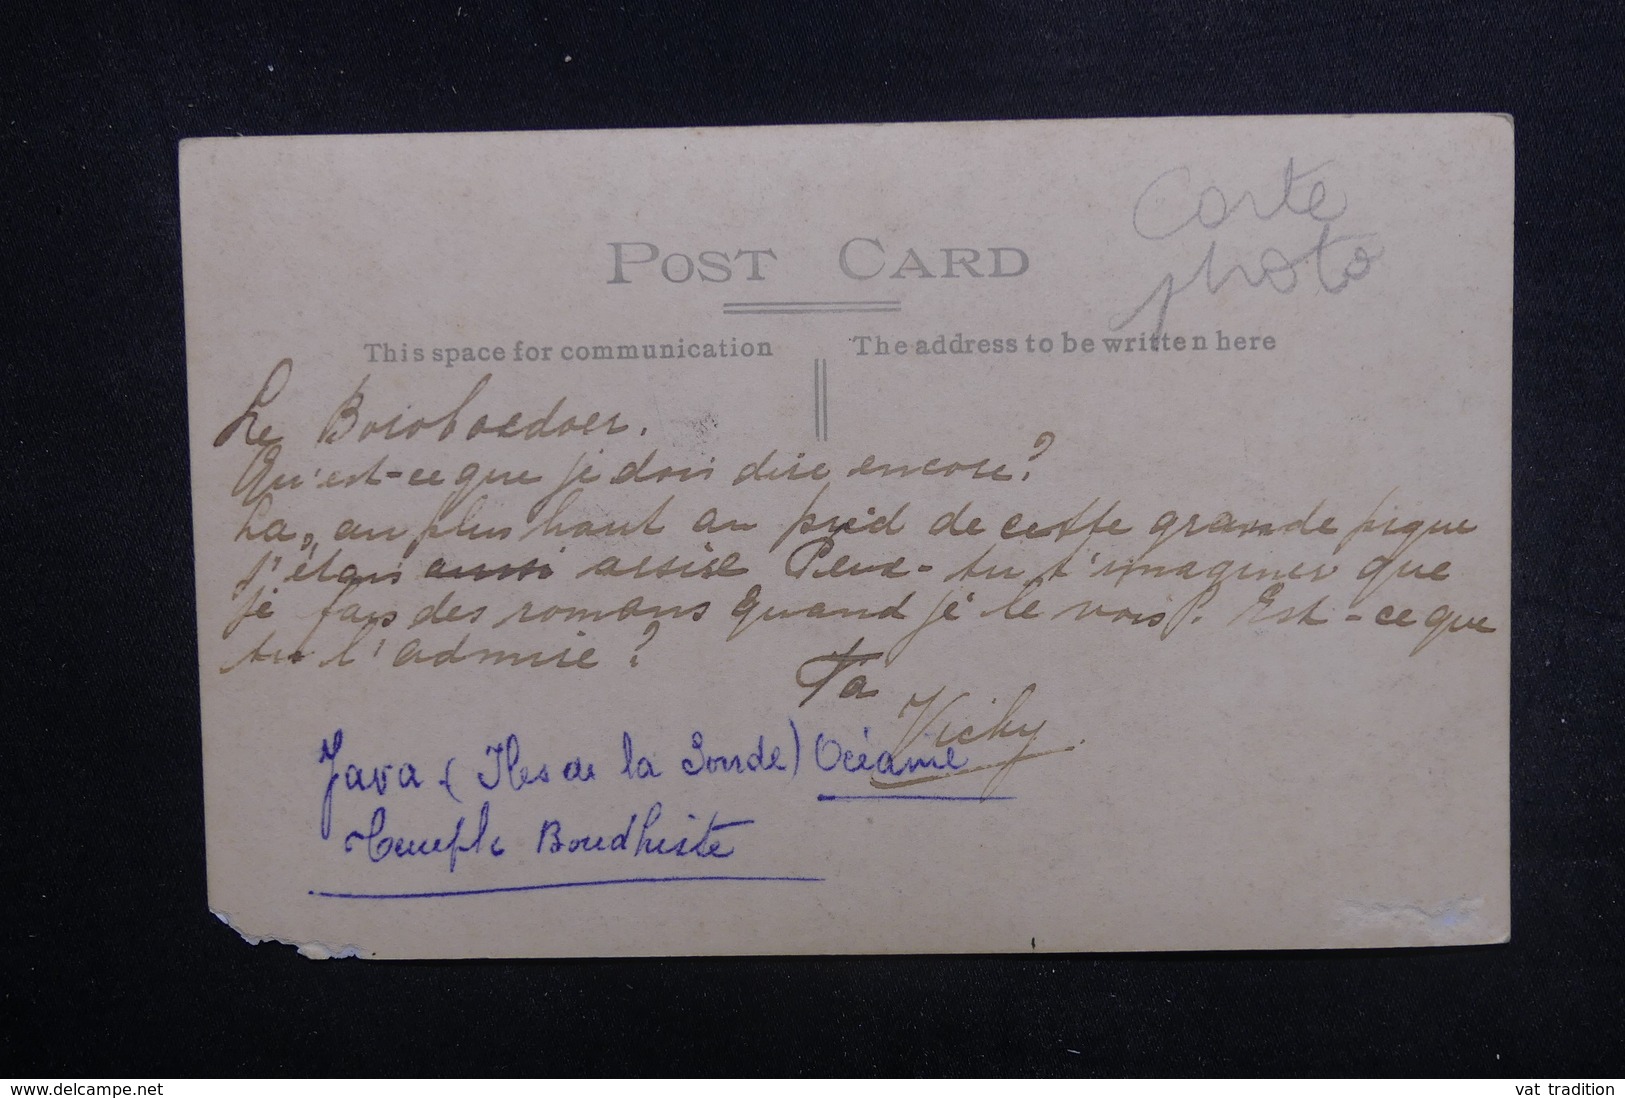 Carte
photo
POST CARD
This space for communication
The address to be written here
Le Boroboedoer.
Qu'est-ce que je dois dire encore?
La, au plus haut au pied de cette grande pique
j'étais aussi assise Peux-tu t'imaginer que
je fais des romans quand je le vois?. Est-ce que
tu l'admire?
Ta
Vicky
Java (Iles de la Sonde) Océanie
Temple Boudhiste
www.delcampe.net
vat tradition